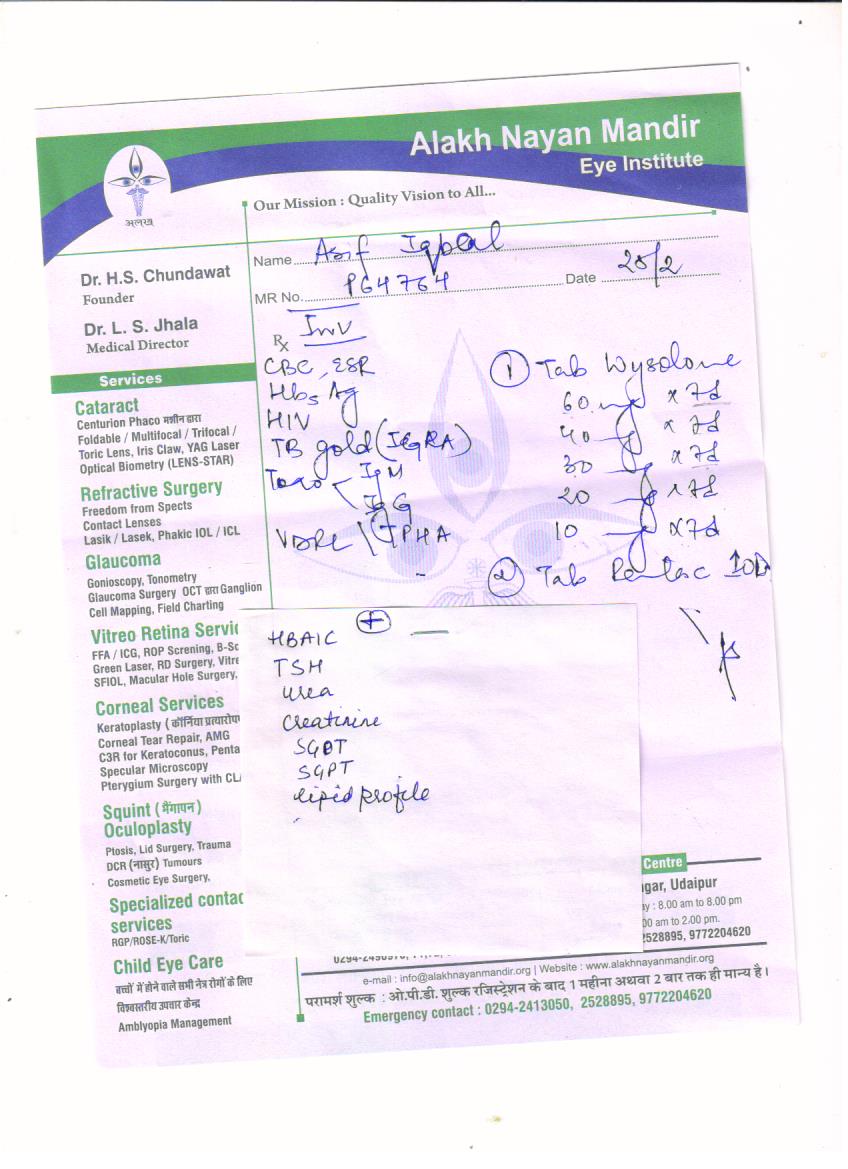 Alakh Nayan Mandir
Eye Institute
अलख
Our Mission : Quality Vision to All...
Name Asif Iqbal
MR No. P64764 Date 28/2
Dr. H.S. Chundawat
Founder
Dr. L. S. Jhala
Medical Director
Services
Cataract
Centurion Phaco मशीन द्वारा
Foldable / Multifocal / Trifocal /
Toric Lens, Iris Claw, YAG Laser
Optical Biometry (LENS-STAR)
Refractive Surgery
Freedom from Spects
Contact Lenses
Lasik / Lasek, Phakic IOL / ICL
Glaucoma
Gonioscopy, Tonometry
Glaucoma Surgery OCT द्वारा Ganglion
Cell Mapping, Field Charting
Vitreo Retina Servic
FFA / ICG, ROP Screning, B-Sc
Green Laser, RD Surgery, Vitre
SFIOL, Macular Hole Surgery,
Corneal Services
Keratoplasty ( कॉर्निया प्रत्यारोप
Corneal Tear Repair, AMG
C3R for Keratoconus, Penta
Specular Microscopy
Pterygium Surgery with CL
Squint ( भैंगापन )
Oculoplasty
Ptosis, Lid Surgery, Trauma
DCR (नासुर) Tumours
Cosmetic Eye Surgery,
Specialized contac
services
RGP/ROSE-K/Toric
Child Eye Care
बच्चों में होने वाले सभी नेत्र रोगों के लिए
विश्वस्तरीय उपचार केन्द्र
Amblyopia Management
Rx Inv
CBC, ESR
HbsAg
HIV
TB gold (IGRA)
Toxo IgM
IgG
VDRL \ TPHA
① Tab Wysolone
60 mg x 7d
40 x 7d
30 x 7d
20 x 7d
10 x 7d
② Tab Rentac 1OD
+
HBAIC
TSH
urea
Creatinine
SGOT
SGPT
lipid profile
Centre
gar, Udaipur
ay : 8.00 am to 8.00 pm
00 am to 2.00 pm.
2528895, 9772204620
e-mail : info@alakhnayanmandir.org | Website : www.alakhnayanmandir.org
परामर्श शुल्क : ओ.पी.डी. शुल्क रजिस्ट्रेशन के बाद 1 महीना अथवा 2 बार तक ही मान्य है।
Emergency contact : 0294-2413050, 2528895, 9772204620